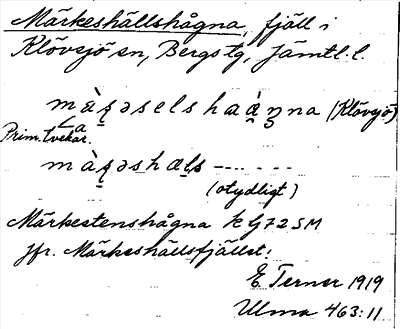 Märkeshällshågna, fjäll i
Klövsjö sn, Bergs tg, Jämtl. l.
(Klövsjö)
Prim. tvekar.
(otydligt)
Märkestenshågna k G72SM
jfr. Märkeshällsfjället!
E. Terner 1919
Ulma 463:11